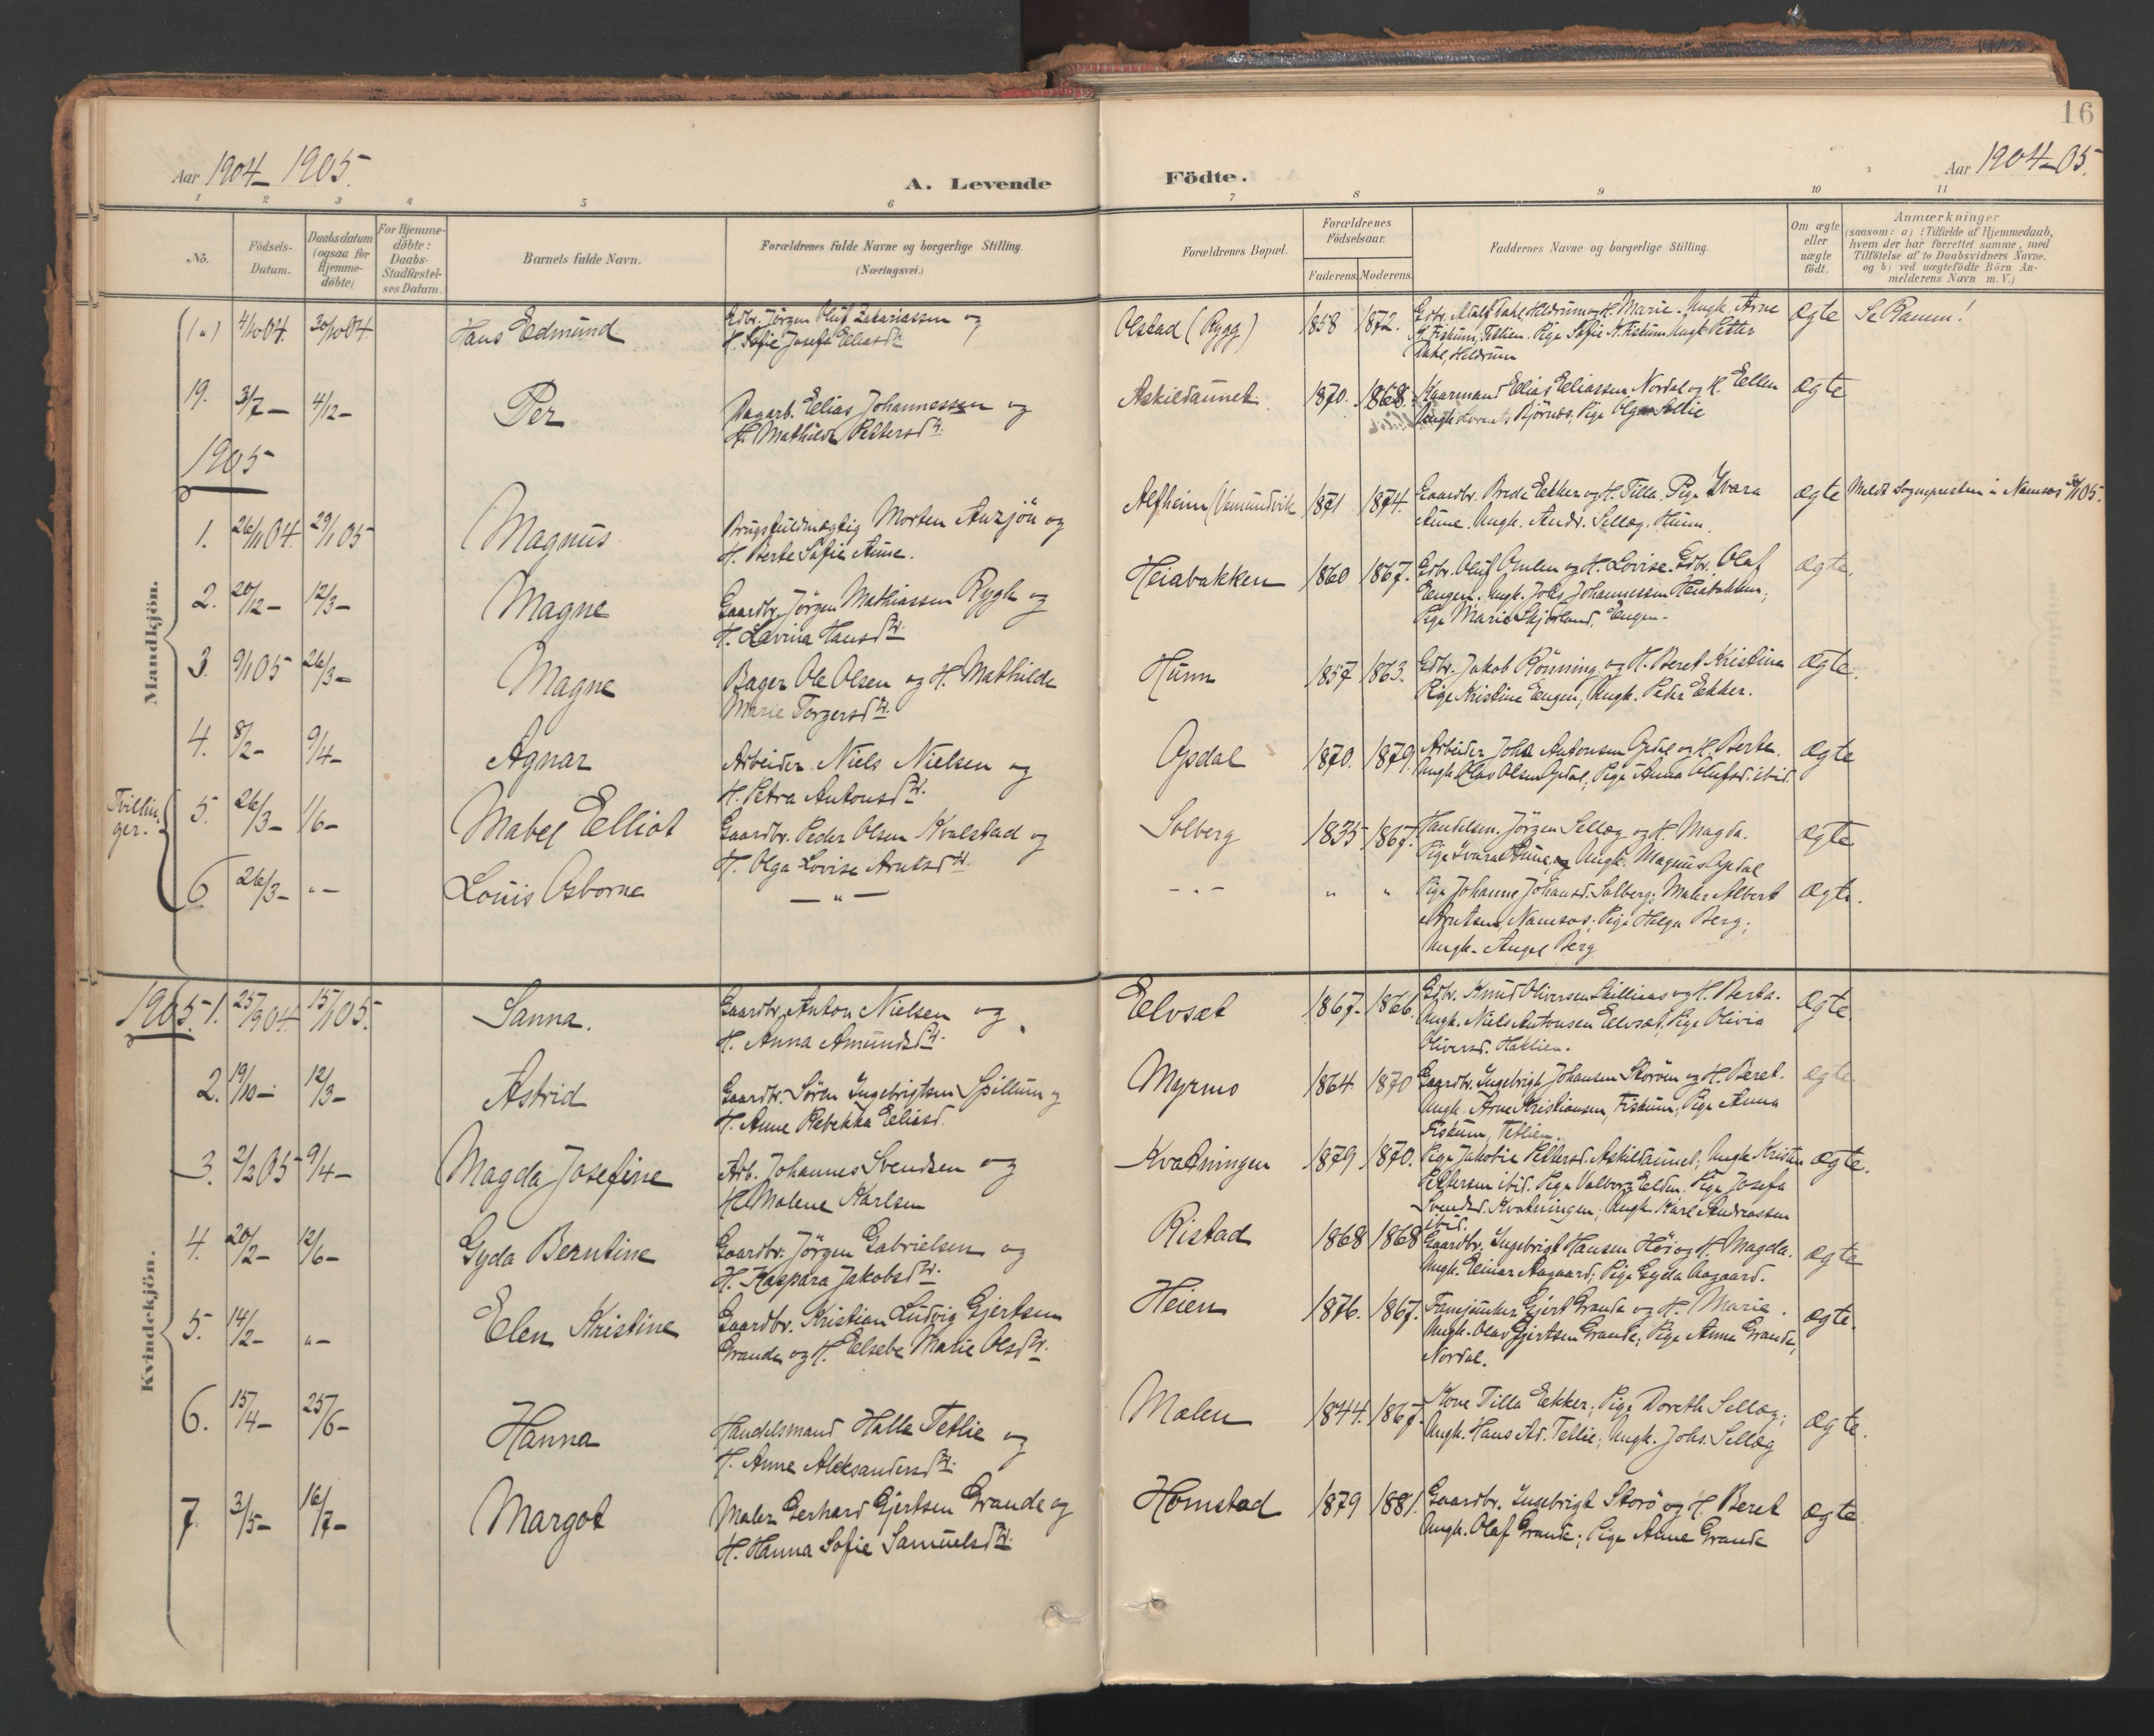 16
Aar 1904-1905.
A. Levende
Födte.
Aar 1904-05.
1 2 3 4 5 6 7 8 9 10 11
No.
Födsels-
Datum.
Daabsdatum
(ogsaa for
Hjemme-
döbte)
For Hjemme-
döbte:
Daabs-
Stadfæstel-
ses Datum.
Barnets fulde Navn.
Forældrenes fulde Navne og borgerlige Stilling.
(Næringsvei.)
Forældrenes Bopæl.
Forældrenes
Födselsaar.
Faderens. Moderens.
Faddernes Navne og borgerlige Stilling.
Om ægte
eller
uægte
født.
Anmærkninger
(saasom: a) i Tilfælde af Hjemmedaab,
hvem der har forrettet samme, med
Tilföielse af to Daabsvidners Navne.
og b) ved uægtefödte Börn An-
melderens Navn m. V.)
Mandkjön.
4/10 04. 30/10 04. Hans Edmund
Gdbr. Jörgen Oluf Zakariassen og
H. Sofie Josefa Eliasdtr.
Olstad (Rygg) 1858 1872.
Dahl, Heldrum og H. Marie. Ungk. Arne
Fiskum, Tetlien. Pige Sofie Fiskum. Ungk. Petter
Dahl, Heldrum
ægte Se Ranem!
19. 3/7 - 4/12 - Per
Dagarb. Elias Johannessen og
H. Mathilde Pettersdtr.
Askildaunet 1870. 1868.
Kaarmand Elias Eliassen Nordal og H. Ellen
Ungk. Björnes, Pige Olga
ægte
1905
1. 26/11 04. 29/1 05 Magnus
Brugsfuldmægtig Morten Anzjön og
H. Berte Sofie Aune.
Alfheim (Vemundvik 1871 1874.
Gaardbr. Breda Ekker og H. Tilla. Pige Ivara
Aune. Ungk. Andr. Sellæg. Hunn.
ægte Meldt Sognepresten i Namsos
2. 20/12 - 12/3 - Magne
Gaardbr. Jörgen Mathiassen Rygh og
H. Lavina Hansdtr.
Heiabakken 1860 1867.
Gdbr. Oluf og H. Lovise. Gdbr. Olaf
Engen. Ungk. Johs Johannessen Heiabakken;
Pige Marie Engen.
ægte.
3. 9/1 05 26/3 - Magne
Bager Ole Olsen og H. Mathilde
Marie Torgersdtr.
Hunn 1857 1863.
Gdbr. Jakob Rönning og H. Beret Kristine
Pige Kristine Engen; Ungk. Peder Ekker.
ægte.
4. 8/2 - 9/4 - Agnar
Arbeider Niels Nielsen og
H. Petra Antonsdtr.
Opdal 1870. 1879.
Arbeider Joh. Antonsen Opdal og H. Berte.
Ungk. Olav Olsen Opdal; Pige Anna Olufsd. ibid.
ægte
Tvillin-
ger.
5. 26/3 - 1/6 - Mabel Elliot
Gaardbr. Peder Olsen Kvalstad og
H. Olga Lovise Arntsdtr.
Solberg 1835 1867.
Handelsm. Jörgen Sellæg og H. Magda.
Pige Ivara Aune, og Ungk. Magnus Opdal
ægte
6 26/3 - " - Louis Osborne
- " -
- " - " "
Pige Johanne Johansd. Solberg; Maler Albert
Arntsen, Namsos; Pige Helga Berg;
Ungk. August Berg
ægte.
Kvindekjön.
1905. 1. 25/9 04. 15/1 05. Sanna.
Gaardbr. Anton Nielsen og
H. Anna Amundsdtr.
Elvsæt 1867. 1866.
Gdbr. Knud Oliversen og H. Berta.
Ungk. Niels Antonsen Elvsæt, Pige Olivia
Oliversd. Haklien.
ægte
2. 19/10 - 12/3 - Astrid
Gaardbr. Sören Ingebrigtsen Spillum og
H. Anne Rebekka Eliasd.
Myrmo 1864 1870
Gaardbr. Ingebrigt Johansen Storöen og H. Beret.
Ungk. Arne Kristiansen, Fiskum; Pige Anna
Fiskum, Tetlien.
ægte
3. 2/2 05 9/4 - Magda Josefine
Arb. Johannes Svendsen og
H. Malene Karlsen
Kvatningen 1879 1870.
Pige Jakobie Pettersd. Askildaunet; Ungk. Kristen
Pettersen ibid. Pige Valborg Elden. Pige Josefa
Svendsd. Kvatningen; Ungk. Karl Andreassen
ibid.
ægte.
4. 20/2 - 12/6 - Gyda Berntine
Gaardbr. Jörgen Gabrielsen og
H. Kaspara Jakobsdtr.
Ristad 1868 1868
Gaardbr. Ingebrigt Hansen Höi og H. Magda.
Ungk. Einar Aagaard; Pige Gyda Aagaard.
ægte
5. 14/2 - " - Elen Kristine
Gaardbr. Kristian Ludvig Gjertsen
Grande og H. Elsebe Marie Olsdtr.
Heien 1876. 1867.
Fanejunker Gjert Grande og H. Marie.
Ungk. Olav Gjertsen Grande; Pige Anna Grande,
Nordal.
ægte.
6. 15/4 - 25/6 - Hanna
Handelsmand Halle Tetlie og
H. Anne Aleksandersdtr.
Malen 1844. 1867.
Kone Tilla Ekker; Pige Doreth Sellæg;
Ungk. Hans Ad. Tetlie; Ungk. Johs. Sellæg
ægte.
7. 3/5 - 16/7 - Margot
Maler Gerhard Gjertsen Grande og
H. Hanna Sofie Samuelsdtr.
Homstad 1879 1881.
Gaardbr. Ingebrigt Storö og H. Beret
Ungk. Olaf Grande; Pige Anne Grande
ægte.